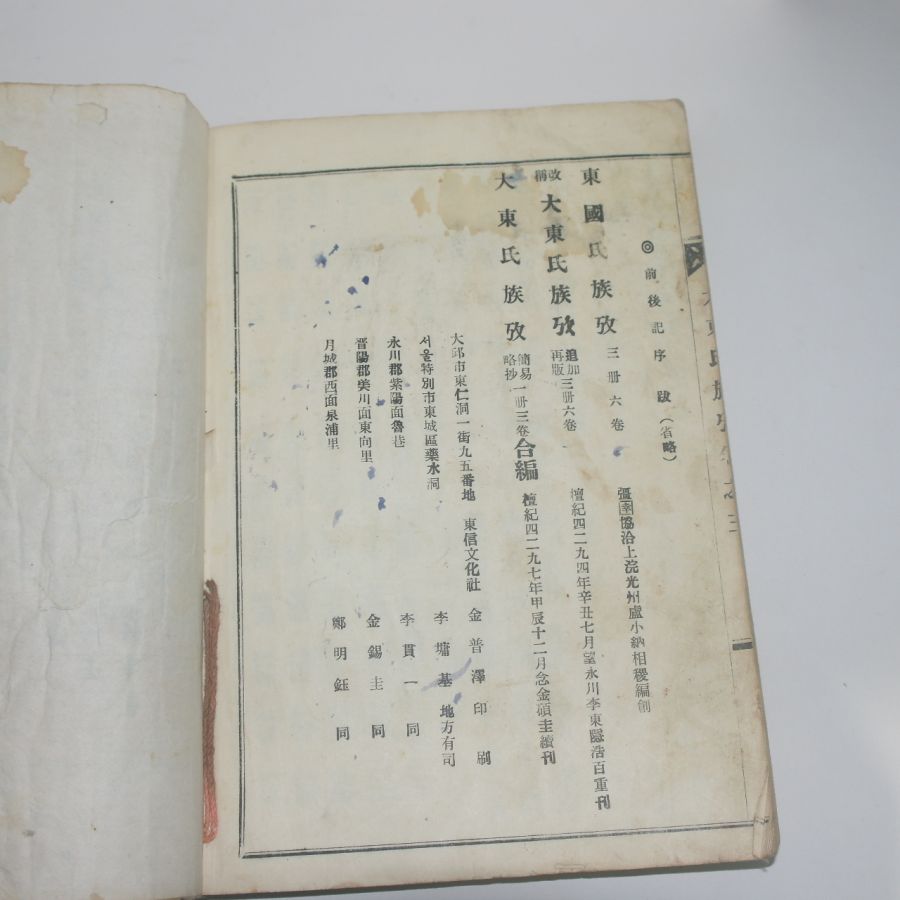 大東氏族攷
◎前後記序跋(省略)
東國氏族攷 三册六卷 彊圉協洽上浣光州盧小納相稷編創
改稱 大東氏族攷 追加再版 三册六卷 檀紀四二九四年辛丑七月望永川李東隱浩百重刊
大東氏族攷 簡易略抄 一册三卷 合編 檀紀四二九七年甲辰十二月念金碩圭續刊
大邱市東仁洞一街九五番地 東信文化社 金普澤印刷
서울特別市東城區藥水洞 李墉基 地方有司
永川郡紫陽面魯巷 李貫一 同
晋陽郡美川面東向里 金錫圭 同
月城郡西面泉浦里 鄭明鈺 同